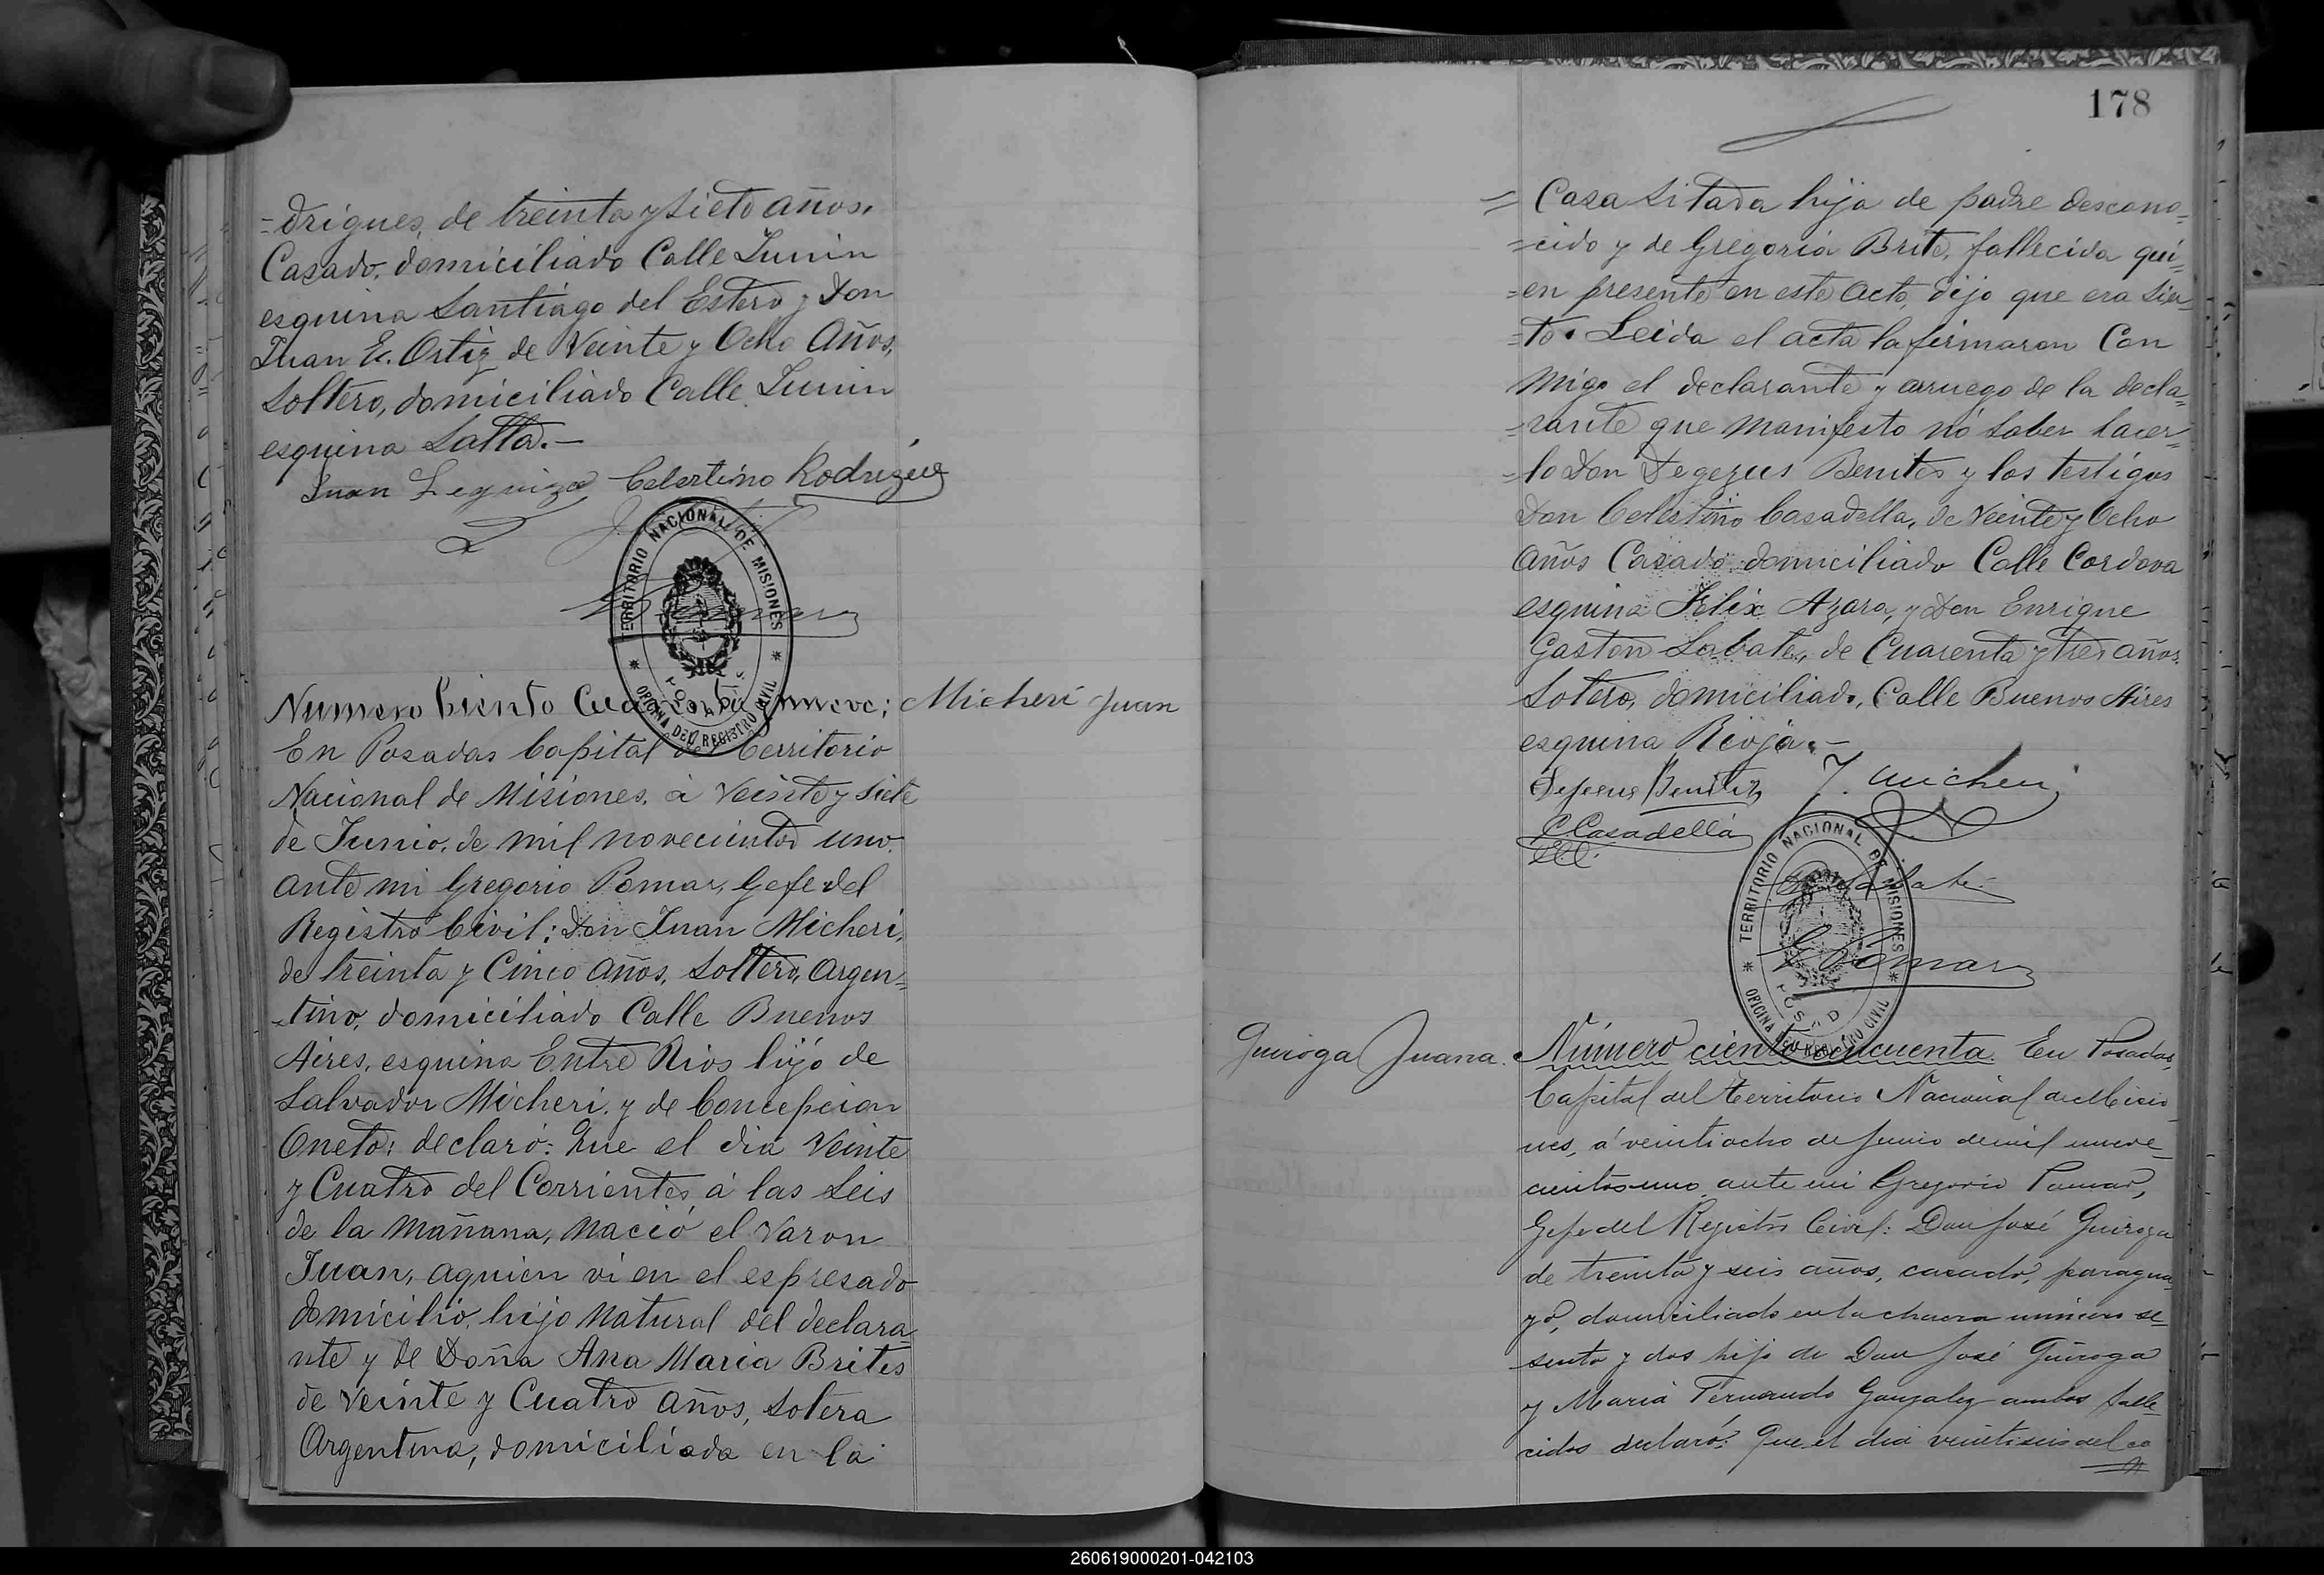 =drigues, de treinta y Siete años,
Casado, domiciliado Calle Junin
esquina Santiago del Estero y Don
Juan E. Ortiz de Veinte y Ocho Años,
Soltero, domiciliado Calle Junin
esquina Salta.—
Juan Leguiza Celestino Rodriguez
TERRITORIO NACIONAL DE MISIONES
POSADAS
OFICINA DEL REGISTRO CIVIL
Numero Ciento Cuarenta y nueve; Micheri Juan
En Posadas Capital del Territorio
Nacional de Misiones, á Veinte y Siete
de Junio, de mil novecientos uno.
ante mi Gregorio Pomar, Gefe del
Registro Civil: Don Juan Micheri,
de treinta y Cinco años, Soltero, Argen=
=tino, domiciliado Calle Buenos
Aires, esquina Entre Rios hijo de
Salvador Micheri, y de Concepcion
Oneto: declaró: Que el dia Veinte
y Cuatro del Corrientes á las Seis
de la Mañana, Nació el Varon
Juan, aquien vi en el espresado
domicilio, hijo Natural del declara=
nte y de Doña Ana Maria Brites
de Veinte y Cuatro Años, Solera
Argentina, domiciliada en la
178
= Casa Sitada hija de padre descono=
=cido y de Gregoria Brite, fallecida qui=
=en presente en este Acto, dijo que era Sier=
=to. Leida el acta la firmaron Con
Migo el declarante y arruego de la decla=
=rante que Manifesto nó Saber hacer=
=lo Don Degezus Benites y los testigos
Don Celestino Casadella, de Veinte y Ocho
Años Casado domiciliado Calle Cordova
esquina Felix Azara, y Don Enrique
Gaston Labate, de Cuarenta y tres años,
Sotero, domiciliado, Calle Buenos Aires
esquina Rioja.—
Dejesus Benites J. Micheri
C. Casadella
Labate
TERRITORIO NACIONAL DE MISIONES
G Pomar
POSADAS
OFICINA DEL REGISTRO CIVIL
Quiroga Juana. Número ciento cincuenta. En Posadas,
Capital del Territorio Nacional de Misio
nes, á veintiocho de Junio de mil nueve=
cientos uno ante mi Gregorio Pomar,
Gefe del Registro Civil: Don José Quiroga
de treinta y seis años, casado, paragua
yo, domiciliado en la chacra numero se=
senta y dos hijo de Don José Quiroga
y Maria Fernanda Gonzalez ambos falle=
cidos declaró: Que el dia veintiseis del co